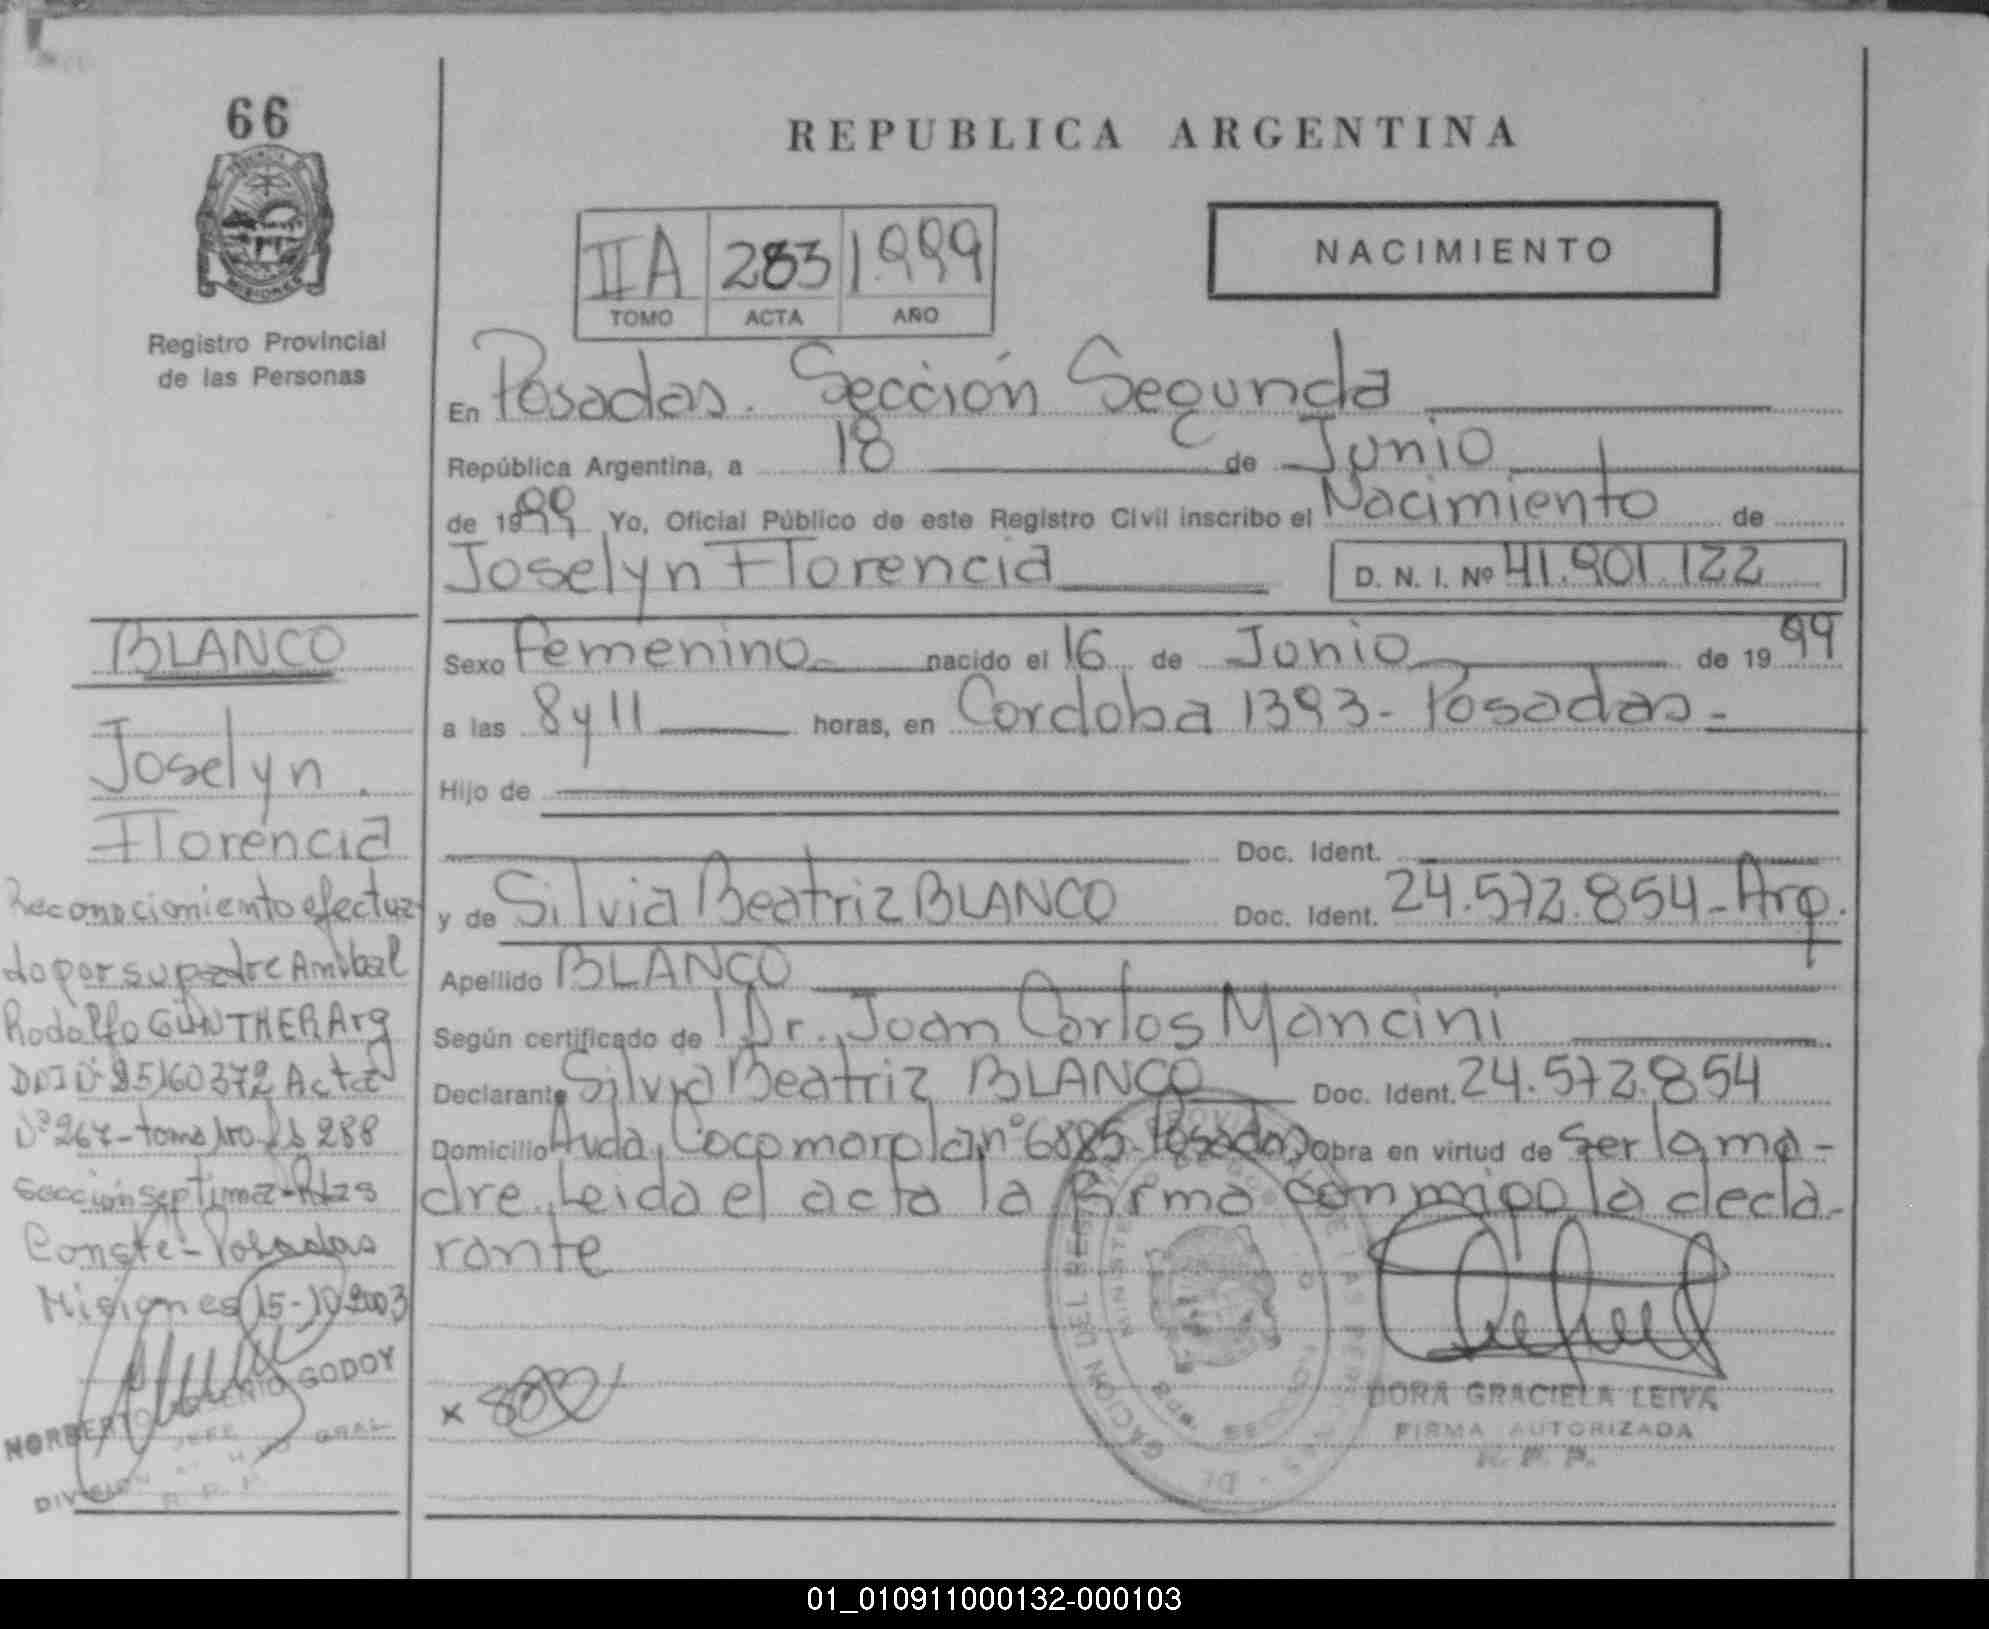 66
REPUBLICA ARGENTINA
IIA 283 1.999
TOMO ACTA AÑO
NACIMIENTO
MISIONES
Registro Provincial
de las Personas
En Posadas. Sección Segunda
República Argentina, a 18 de Junio
de 1999 Yo, Oficial Público de este Registro Civil inscribo el Nacimiento de
Joselyn Florencia D. N. I. Nº 41.901.122
Sexo Femenino nacido el 16 de Junio de 1999
a las 8 y 11 horas, en Cordoba 1393 - Posadas -
Hijo de
Doc. Ident.
y de Silvia Beatriz BLANCO Doc. Ident. 24.572.854 - Arg.
Apellido BLANCO
Según certificado de Dr. Juan Carlos Mancini
Declarante Silvia Beatriz BLANCO Doc. Ident. 24.572.854
Domicilio Avda. Cocomarola nº 6885 - Posadas Obra en virtud de ser la ma-
dre. Leida el acta la firma conmigo la decla-
rante
DORA GRACIELA LEIVA
FIRMA AUTORIZADA
R. P. P.
BLANCO
Joselyn
Florencia
Reconocimiento efectua
do por su padre Anibal
Rodolfo GUNTHER Arg
DNI Nº 25160372 Acta
Nº 267 - tomo 288
Sección septima - Pdas
Conste - Posadas
Misiones 15-10-2003
NORBERTO GODOY
JEFE
DIVISION GRAL
R. P. P.
01_010911000132-000103